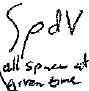 ∫ρdV
all space at
given time